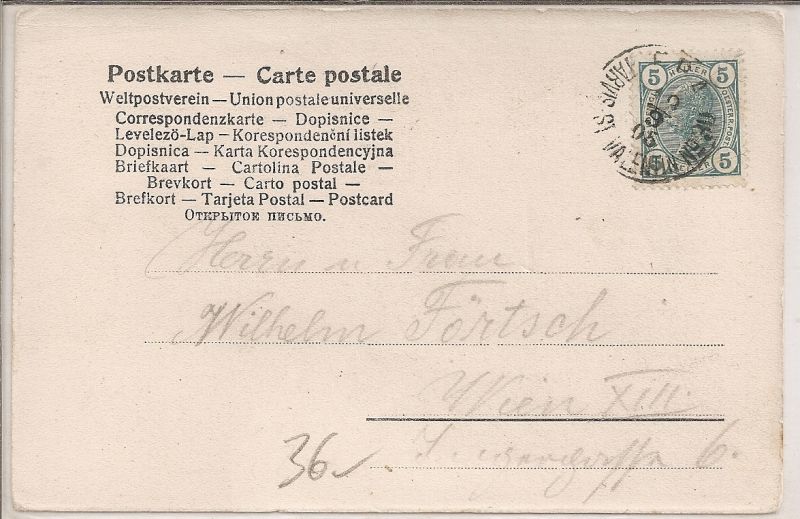 Postkarte — Carte postale
Weltpostverein — Union postale universelle
Correspondenzkarte — Dopisnice —
Levelező-Lap — Korespondenční listek
Dopisnica — Karta Korespondencyjna
Briefkaart — Cartolina Postale —
Brevkort — Carto postal —
Brefkort — Tarjeta Postal — Postcard
Открытое письмо.
5 HELLER 5
5 5
TARVIS ST VALENTIN
Herrn u Frau
Wilhelm Förtsch
Wien XIII.
6.
36